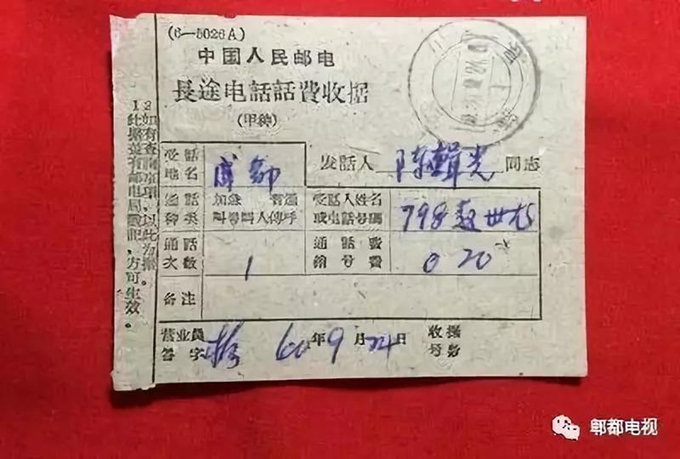 (6—5026A)
中国人民邮电
長途电話話費收据
(甲種)
受話
地名
成都
发話人 陈輯光 同志
通話
种类
加急 普通
叫号叫人傳呼
受話人姓名
或电話号碼
798
通話
次数
1
通話費
銷号費
0 20
备注
营业員
签字
60年9月24日
收据
号数
1
此据盖有邮电局戳記,方可生效。
2
如有查詢事項,以此为据。
郫都电视